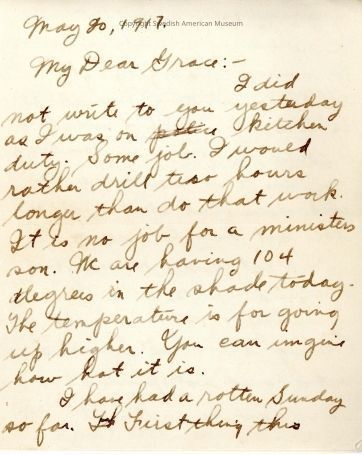 Copyright Swedish American Museum
May 20, 1917.
My Dear Grace:-
I did
not write to you yesterday
as I was on police kitchen
duty. Some job. I would
rather drill two hours
longer than do that work.
It is no job for a ministers
son. We are having 104
degrees in the shade today.
The temperature is for going
up higher. You can imgine
how hot it is.
I have had a rotten Sunday
so far. First thing this